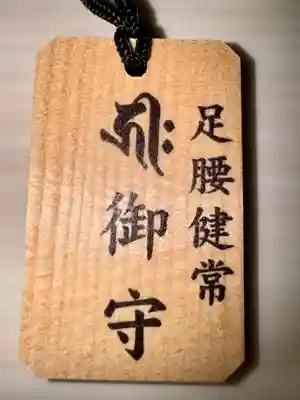 足腰健常
御守